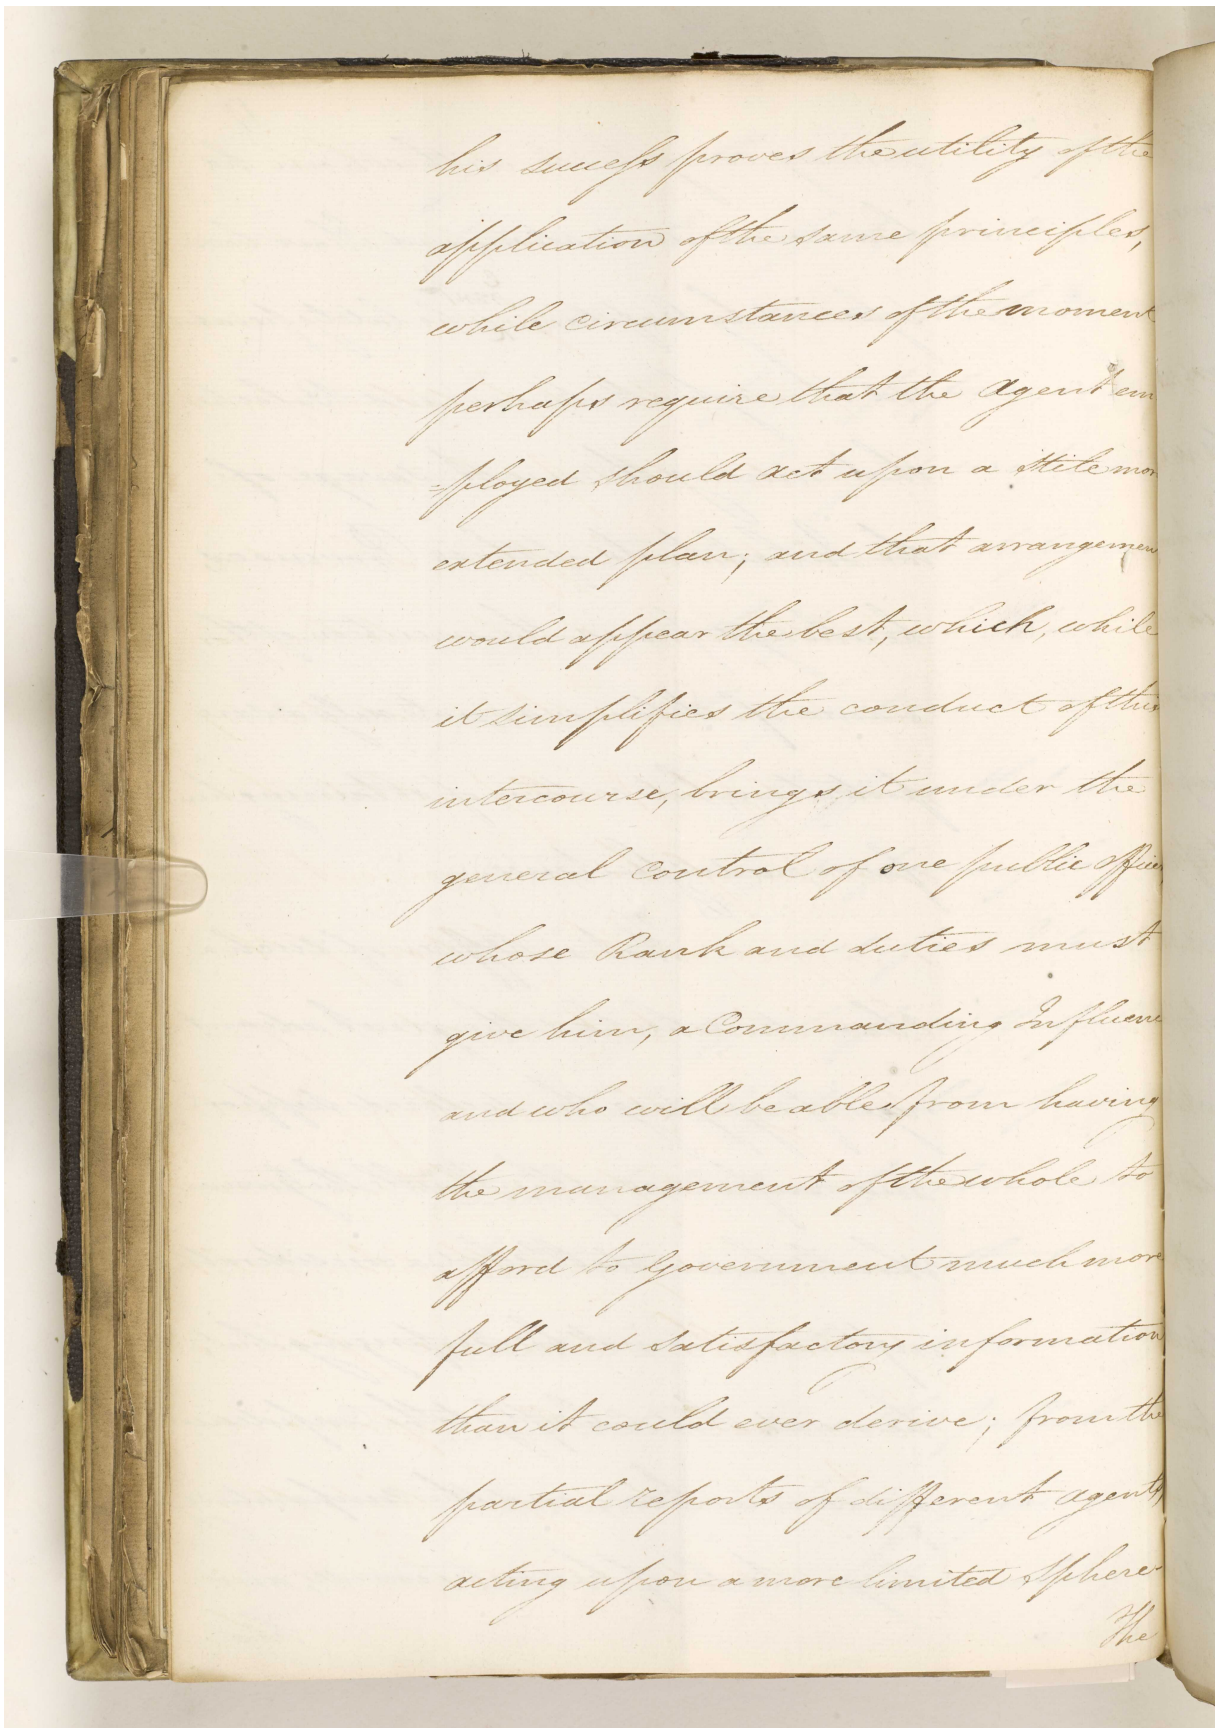 his success proves the utility of the
application of the same principles,
while circumstances of the moment
perhaps require that the Agent em
=ployed should act upon a more
extended plan; and that arrangemen
would appear the best, which, while
it simplifies the conduct of this
intercourse, brings it under the
general Control of one public officer
whose Rank and duties must
give him, a Commanding Influence
and who will be able from having
the management of the whole to
afford to Government much more
full and satisfactory information
than it could ever derive; from the
partial reports of different agents,
acting upon a more limited Sphere
The